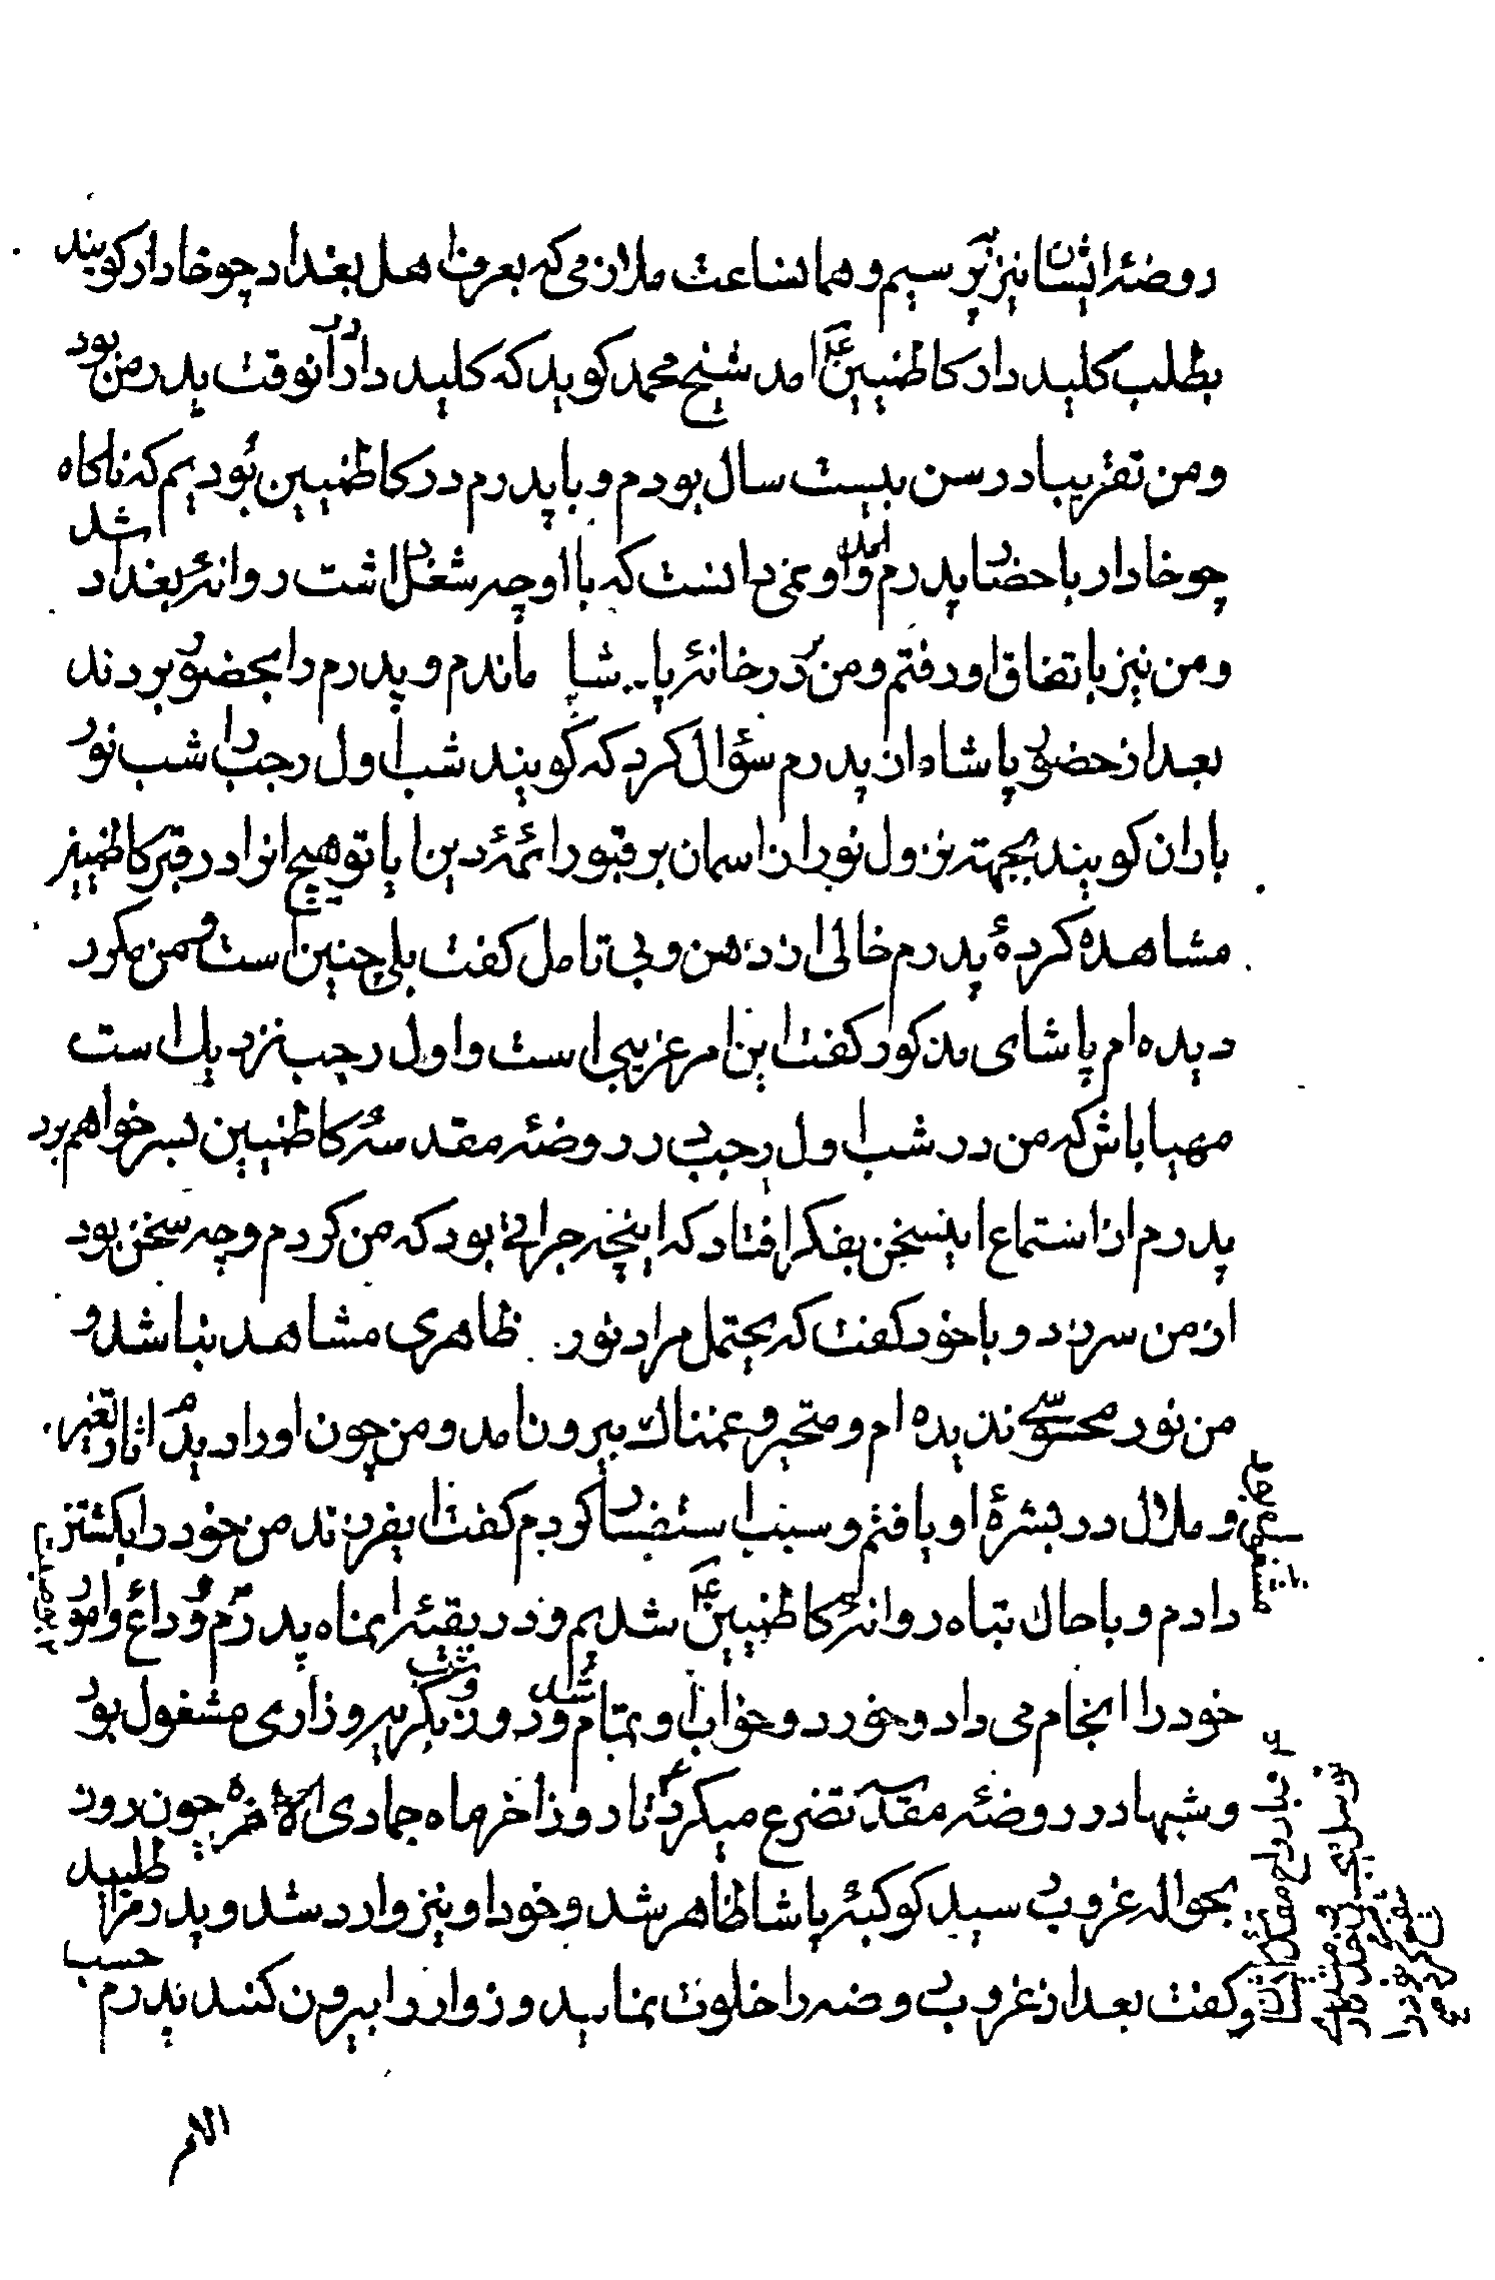 روضهٔ ایشان نیز برسیم و همانساعت ملازمی که بعرف اهل بغداد چوخادار کویند
بطلب کلید دار کاظمیین ع امد شیخ محمد کوید که کلید دار در انوقت پدر من بود
و من تقریبا در سن بیست سال بودم و با پدرم در کاظمیین بودیم که ناکاه
چوخادار باحضار پدرم امد و او نمی دانست که با او چه شغل داشت روانهٔ بغداد شد
و من نیز باتفاق او رفتم و من بر در خانهٔ پاشا ماندم و پدرم را بحضور بردند
بعد از حضور پاشاه از پدرم سؤال کرد که کویند شب اول رجب را شب نور
باران کویند بجهته نزول نور از اسمان بر قبور ائمهٔ دین ایا تو هیچ انرا در قبر کاظمیین
مشاهده کردهٔ پدرم خالی از ذهن و بی تامل کفت بلی چنین است و من مکرر
دیده ام پاشای مذکور کفت این امر غریبی است و اول رجب نزدیک است
مهیا باش که من در شب اول رجب در روضهٔ مقدسهٔ کاظمیین بسر خواهم برد
پدرم از استماع اینسخن بفکر افتاد که اینچه جراتی بود که من کردم و چه سخن بود
از من سر زد و با خود کفت که یحتمل مراد نور ظاهری مشاهد نباشد و
من نور محسوسی ندیده ام و متحیر و غمناک بیرون امد و من چون او را دیدم اثار تغیر
و ملال در بشرهٔ او یافتم و سبب استفسار کردم کفت ایفرزند من خود را بکشتن
دادم و با حال تباه روانهٔ کاظمیین ع شدیم و در بقیهٔ ایماه پدرم وداع و امور
خود را انجام می داد و خورد و خواب او تمام شد و روز و شب بکریه و زاری مشغول بود
و شبها در روضهٔ مقدسه تضرع میکرد تا روز اخر ماه جمادی الاخره چون روز
بحواله غروب رسید کوکبهٔ پاشا ظاهر شد و خود او نیز وارد شد و پدر مرا طلبید
و کفت بعد از غروب روضه را خلوت نمایید و زوار را بیرون کنند پدرم حسب
الامر